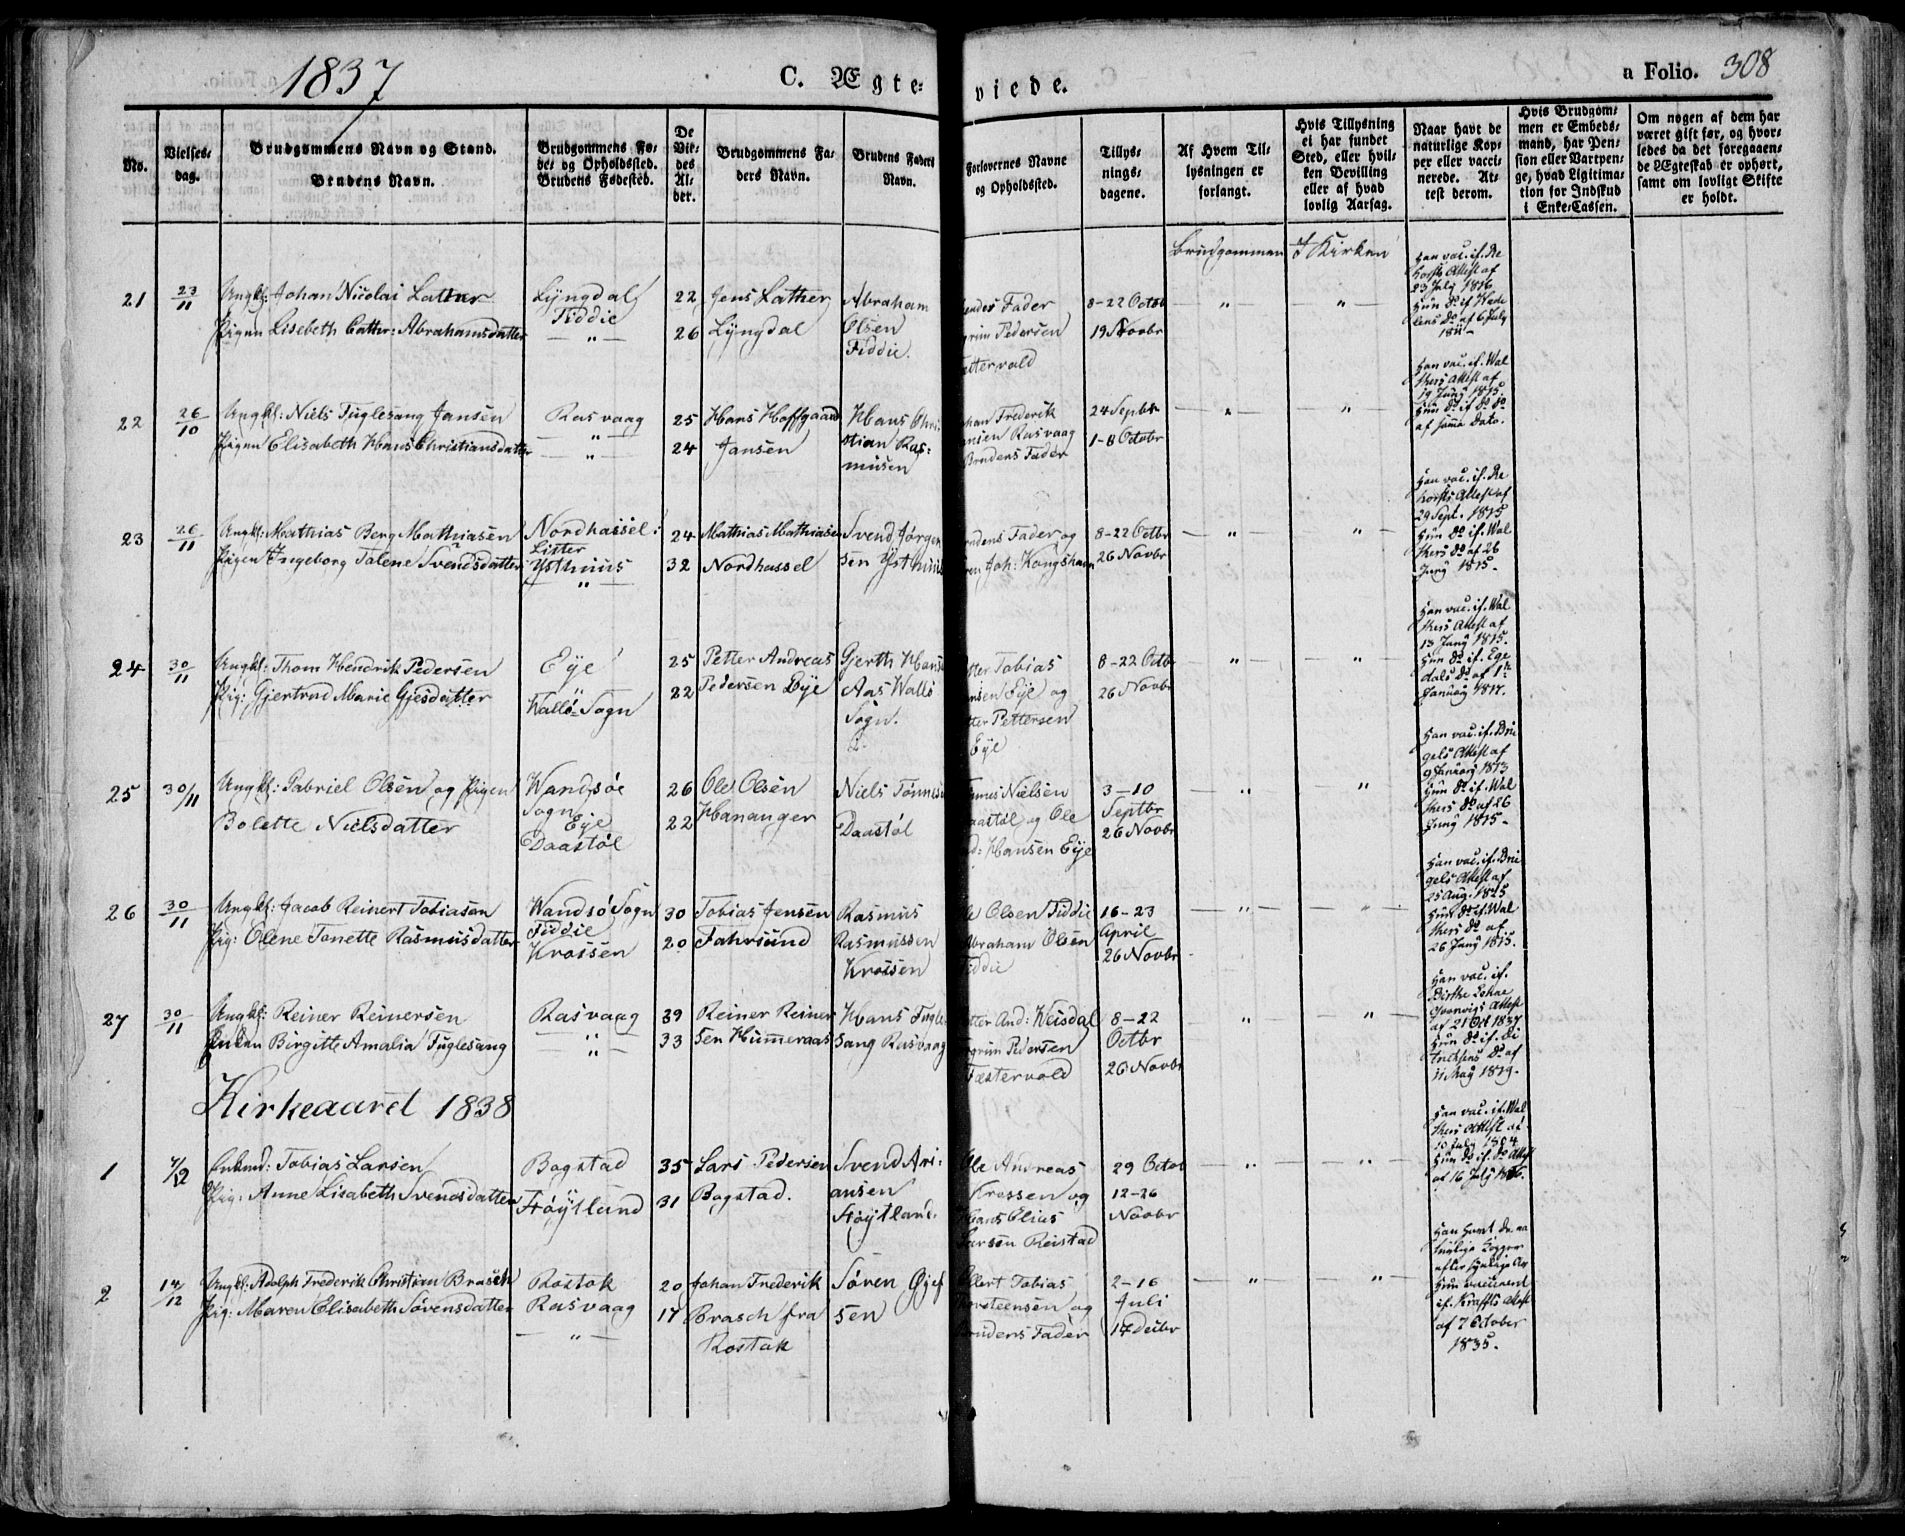 1837
C. Ægte-
viede.
a Folio. 308
No.
Vielses-
dag.
Brudgommens Navn og Stand.
Brudens Navn.
Brudgommens Fø-
de- og Opholdssted.
Brudens Fødested.
De
Vie-
des
Al-
der.
Brudgommens Fa-
ders Navn.
Brudens Faders
Navn.
Forlovernes Navne
og Opholdssted.
Tillys-
nings-
dagene.
Af Hvem Til-
lysningen er
forlangt.
Hvis Tillysning
ei har fundet
Sted, eller hvil-
ken Bevilling
eller af hvad
lovlig Aarsag.
Naar havt de
naturlige Kop-
per eller vacci-
nerede. At-
test derom.
Hvis Brudgom-
men er Embeds-
mand, har Pen-
sion eller Vartpen-
ge, hvad Ligitima-
tion for Indskud
i Enke-Cassen.
Om nogen af dem har
været gift før, og hvor-
ledes da det foregaaen-
de Ægteskab er ophørt,
samt om lovligt Skifte
er holdt.
Brudgommen
I Kirken
21
23/11
Ungkl: Johan Nicolai Lather
Pigen Lisebeth Cathr: Abrahamsdatter
Lyngdal
Fiddie
— " —
22
26
Jens Lather
Lyngdal
Abraham
Olsen
Fiddie.
endes Fader
grim Pedersen
ettervold
8-22 Octbr
19 Novbr
— " —
— " —
Han vac. if. Re
horsts Attest af
23 July 1816
Hun do if Wede
lens do af 6 July
1811-
22
26/10
Ungkl: Niels Fuglesang Jansen
Pigen Elisabeth Hans Christiansdatter
Rasvaag
— " —
— " —
25
24
Hans Hoffgaard
Jansen
Hans Chri-
stian Ras-
musen
ohan Frederik
ansen Rasvaag
Brudens Fader
24 Septbr
1-8 Octobr
— " —
— " —
Han vac. if. Wal
thers Attest af
19 Juny 1815
Hun do if do do
af sama Dato.
23
26/11
Ungkl: Mathias Berg Mathiasen
Pigen Ingeborg Talene Svendsdatter
Nordhassel i
Lister
Ysthuus
— " —
24
32
Mathias Mathiasen
Nordhassel
Svend Jørgen
sen Ysthuus
udens Fader og
en Joh: Kongshavn
8-22 Octbr
26 Novbr
— " —
" —
Han vac. if. Re
horsts Attest af
29 Sept. 1815
Hun do if. Wal
thers do af 26
Juny 1815-
24
30/11
Ungkl: Thom Hendrik Pedersen
Pig: Gjertrud Marie Gjesdatter
Eye
Wallö Sogn
25
22
Petter Andreas
Pedersen Eye
Gjerth Hans
Aas Wallö
Sogn.
tter Tobias
nsen Eye og
tter Pettersen
Eye
8-22 Octbr
26 Novbr
— " —
— " —
Han vac. if. Wal
thers Attest af
13 Juny 1815.
Hun do if. Ege
dals do af 1te
January 1817.
25
30/11
Ungkl: Gabriel Olsen og Pigen
Bolette Nielsdatter
Wandsøe
Sogn
Eye
Daastøl
26
22
Ole Olsen
Hananger
Niels Tønnese
Daastøl
ønnes Nielsen
aastøl og Ole
d: Hansen Eye
3-10
Septbr
26 Novbr
— " —
— " —
Han vac. if. Bri
gels Attest af
9 January 1813
Hun do if. Wal
thers do af 26
Juny 1815-
26
30/11
Ungkl: Jacob Reinert Tobiasen
Pig: Olene Tonette Rasmusdatter
Wandsö Sogn
Fiddie
Krossen
30
20
Tobias Jensen
Fahrsund
Rasmus
Rasmussen
Krossen
e Olsen Fiddie
Abraham Olsen
Fiddie
16-23
April
26 Novbr
— " —
— " —
Han vac. if. Bri
gels Attest af
25 Aug. 1815
Hun do if. Wal
thers do af
26 Juny 1815.
27
30/11
Ungkl: Reiner Reinersen
Enken Birgitte Amalia Fuglesang
Rasvaag
— " —
39
33
Reiner Reiner
sen Hummeraas
Hans Fugle
sang Rasvaag
tter And: Weisdal
ngrim Pedersen
Fæstervold
8-22
Octbr
26 Novbr
— " —
— " —
Han vac. if.
Birthe Lehne
Govervigs Attest
af 21 Oct 1837
Hun do if. Di
tricksens do af
11 May 1819.
Kirkeaaret 1838
1
7/12
Enkmd: Tobias Larsen
Pig: Anne Lisabeth Svendsdatter
Bogstad
Støÿtland
35
31
Lars Pedersen
Bogstad.
Svend Ari-
ansen
Støytland.
Ole Andreas
Krossen og
Hans Elias
Larsen Reistad
29 Octbr
12-26
Novbr
— " —
— " —
Han vac. if. Wal
thers Attest af
10 July 1804
Hun do if. do Attest
af 16 July 1806.
2
14/12
Ungkl: Adolph Frederik Christian Brasch
Pig: Maren Elisabeth Sörensdatter
Rostok
Rasvaag
— " —
20
17
Johan Frederik
Brasch fra
Rostok
Søren Ojef
sen
Ellert Tobias
orsteensen og
Brudens Fader
2-16
Juli
17 Decbr
— " —
— " —
Han havt de na
turlige Kopper
efter synlige Ar
Hun vaccineret
if. Kraffts Attest
af 7 October
1835.